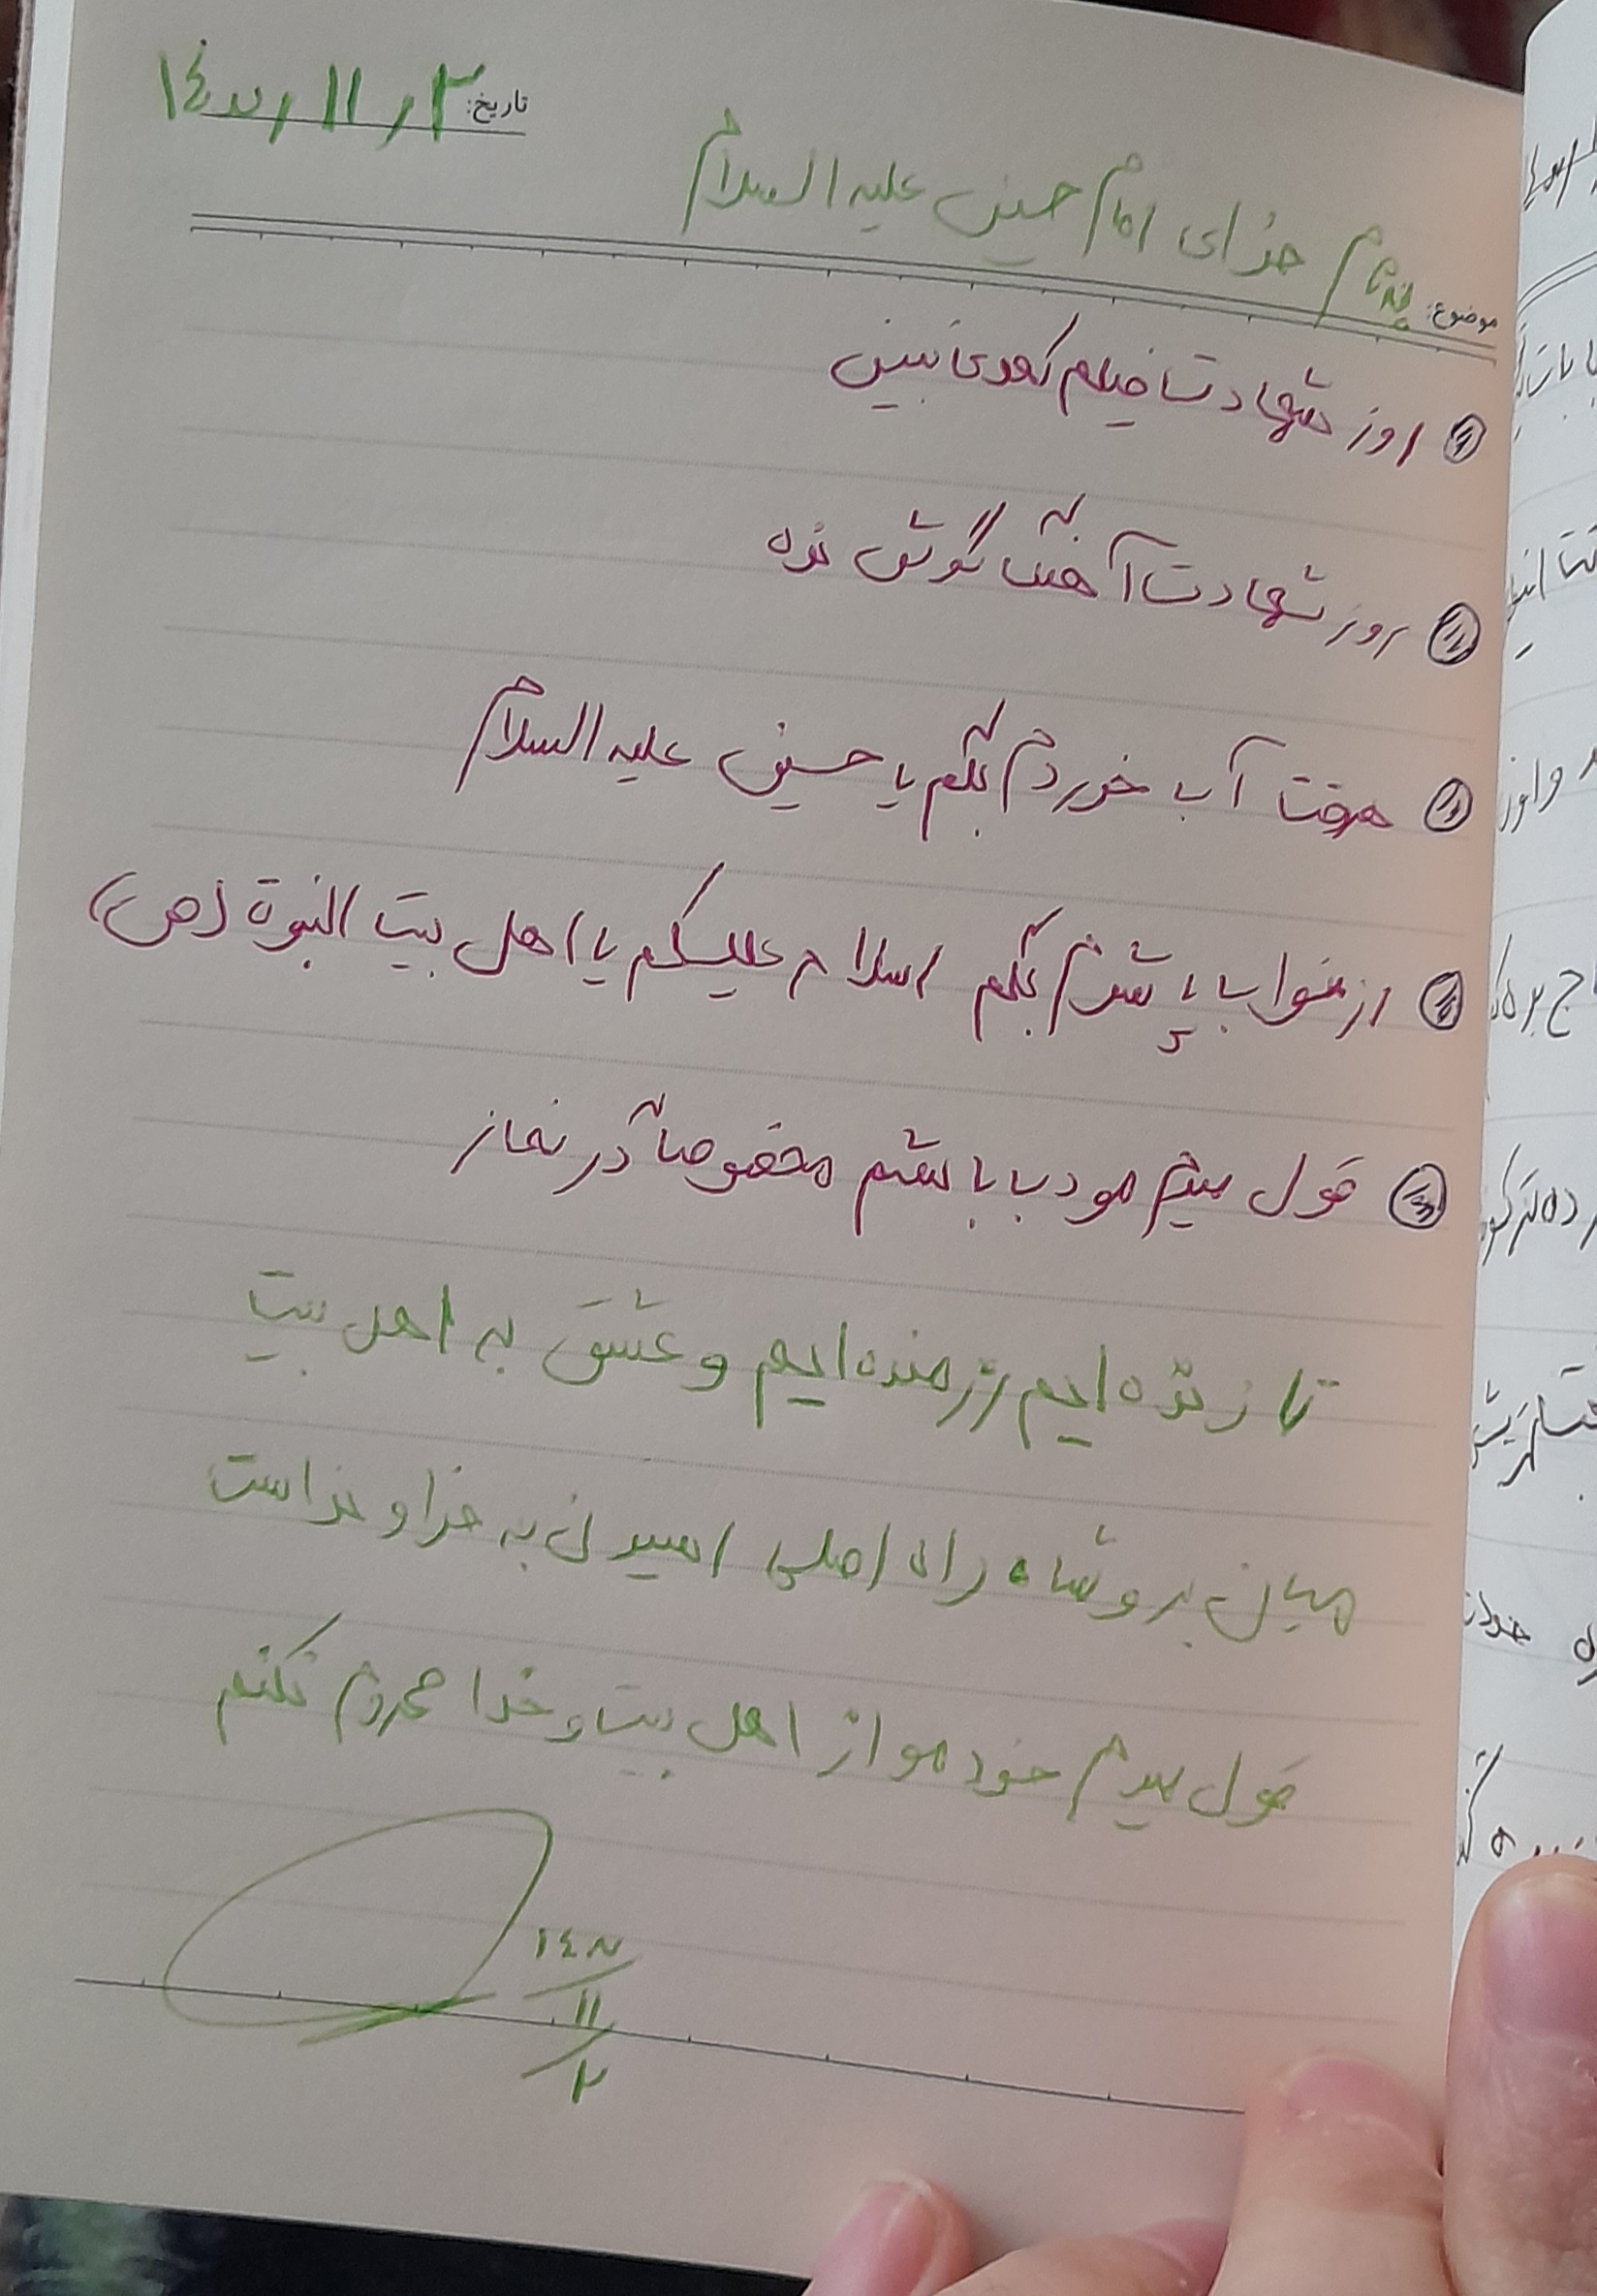 تاریخ: ۳ / ۱۱ /
موضوع: بنام خدای امام حسین علیه السلام
روز شهادت فیلم کمدی نبینی
روز شهادت آهنگ گوش نده
هروقت آب خوردم بگم یا حسین علیه السلام
از خواب پا شدم بگم اسلام علیکم یا اهل بیت النبوة (ص)
قول میدم مودب باشم مخصوصاً در نماز
تا زنده ایم رزمنده ایم و عشق به اهل بیت
میان بر و شاه راه اصلی رسیدن به خدا و خداست
قول میدم خودمو از اهل بیت و خدا محروم نکنم
۱۱
۲